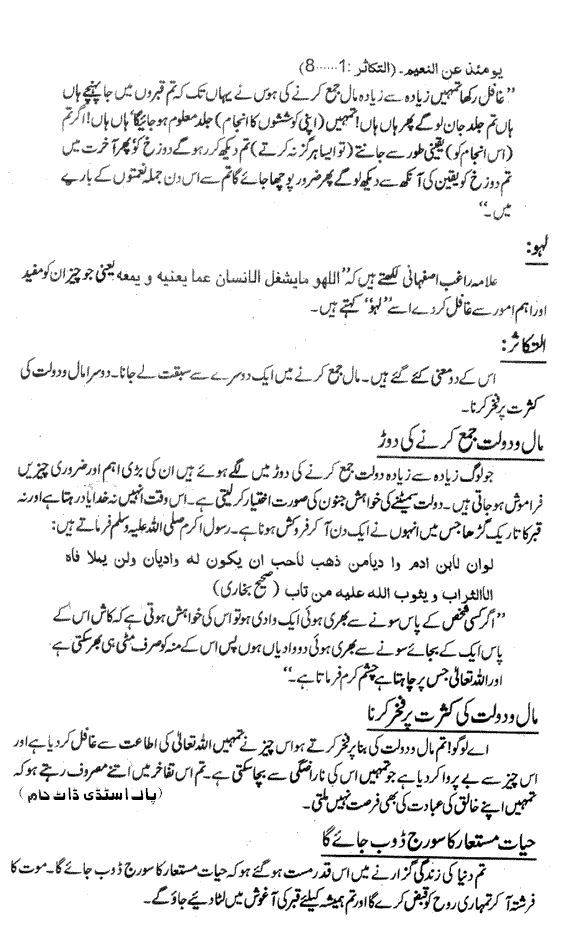 یومئذ عن النعیم۔ (التکاثر :1......8)
”غافل رکھا تمہیں زیادہ سے زیادہ مال جمع کرنے کی ہوس نے یہاں تک کہ تم قبروں میں جا پہنچے ہاں
ہاں تم جلد جان لو گے پھر ہاں ہاں! تمہیں (اپنی کوششوں کا انجام) جلد معلوم ہو جائیگا‘ ہاں ہاں! اگر تم
(اس انجام کو) یقینی طور سے جانتے (تو ایسا ہرگز نہ کرتے) تم دیکھ کر رہو گے دوزخ کو‘ پھر آخرت میں
تم دوزخ کو یقین کی آنکھ سے دیکھ لو گے پھر ضرور پوچھا جائے گا تم سے اس دن جملہ نعمتوں کے بارے
میں۔“
لہو:
علامہ راغب اصفہانی لکھتے ہیں کہ ”اللھو مایشغل الانسان عما یعنیه و یمعه یعنی جو چیز ان کو مفید
اور اہم امور سے غافل کر دے اسے ”لہو“ کہتے ہیں۔
التکاثر:
اس کے دو معنی کئے گئے ہیں۔ مال جمع کرنے میں ایک دوسرے سے سبقت لے جانا۔ دوسرا مال و دولت کی
کثرت پر فخر کرنا۔
مال و دولت جمع کرنے کی دوڑ
جو لوگ زیادہ سے زیادہ دولت جمع کرنے کی دوڑ میں لگے ہوئے ہیں ان کی بڑی اہم اور ضروری چیزیں
فراموش ہو جاتی ہیں۔ دولت سمیٹنے کی خواہش جنون کی صورت اختیار کر لیتی ہے۔ اس وقت انہیں نہ خدا یاد رہتا ہے اور نہ
قبر کا تاریک گڑھا جس میں انہوں نے ایک دن آ کر فروکش ہونا ہے۔ رسول اکرم صلی اللہ علیہ وسلم فرماتے ہیں:
لوان لابن ادم وا دیامن ذھب لاحب ان یکون له وادیان ولن یملا فاه
الاالتراب و یتوب الله علیه من تاب (صحیح بخاری)
”اگر کسی شخص کے پاس سونے سے بھری ہوئی ایک وادی ہو تو اس کی خواہش ہوتی ہے کہ کاش اس کے
پاس ایک کے بجائے سونے سے بھری ہوئی دو وادیاں ہوں پس اس کے منہ کو صرف مٹی ہی بھر سکتی ہے
اور اللہ تعالیٰ جس پر چاہتا ہے چشم کرم فرماتا ہے۔“
مال و دولت کی کثرت پر فخر کرنا
اے لوگو! تم مال و دولت کی بنا پر فخر کرتے ہو اس چیز نے تمہیں اللہ تعالیٰ کی اطاعت سے غافل کر دیا ہے اور
اس چیز سے بے پروا کر دیا ہے جو تمہیں اس کی ناراضگی سے بچا سکتی ہے۔ تم اس تفاخر میں اتنے مصروف رہتے ہو کہ
تمہیں اپنے خالق کی عبادت کی بھی فرصت نہیں ملتی۔ (پاک اسٹڈی ڈاٹ کام)
حیات مستعار کا سورج ڈوب جائے گا
تم دنیا کی زندگی گزارنے میں اس قدر مست ہو گئے ہو کہ حیات مستعار کا سورج ڈوب جائے گا۔ موت کا
فرشتہ آ کر تمہاری روح کو قبض کرے گا اور تم ہمیشہ کیلئے قبر کی آغوش میں لٹا دیئے جاؤ گے۔